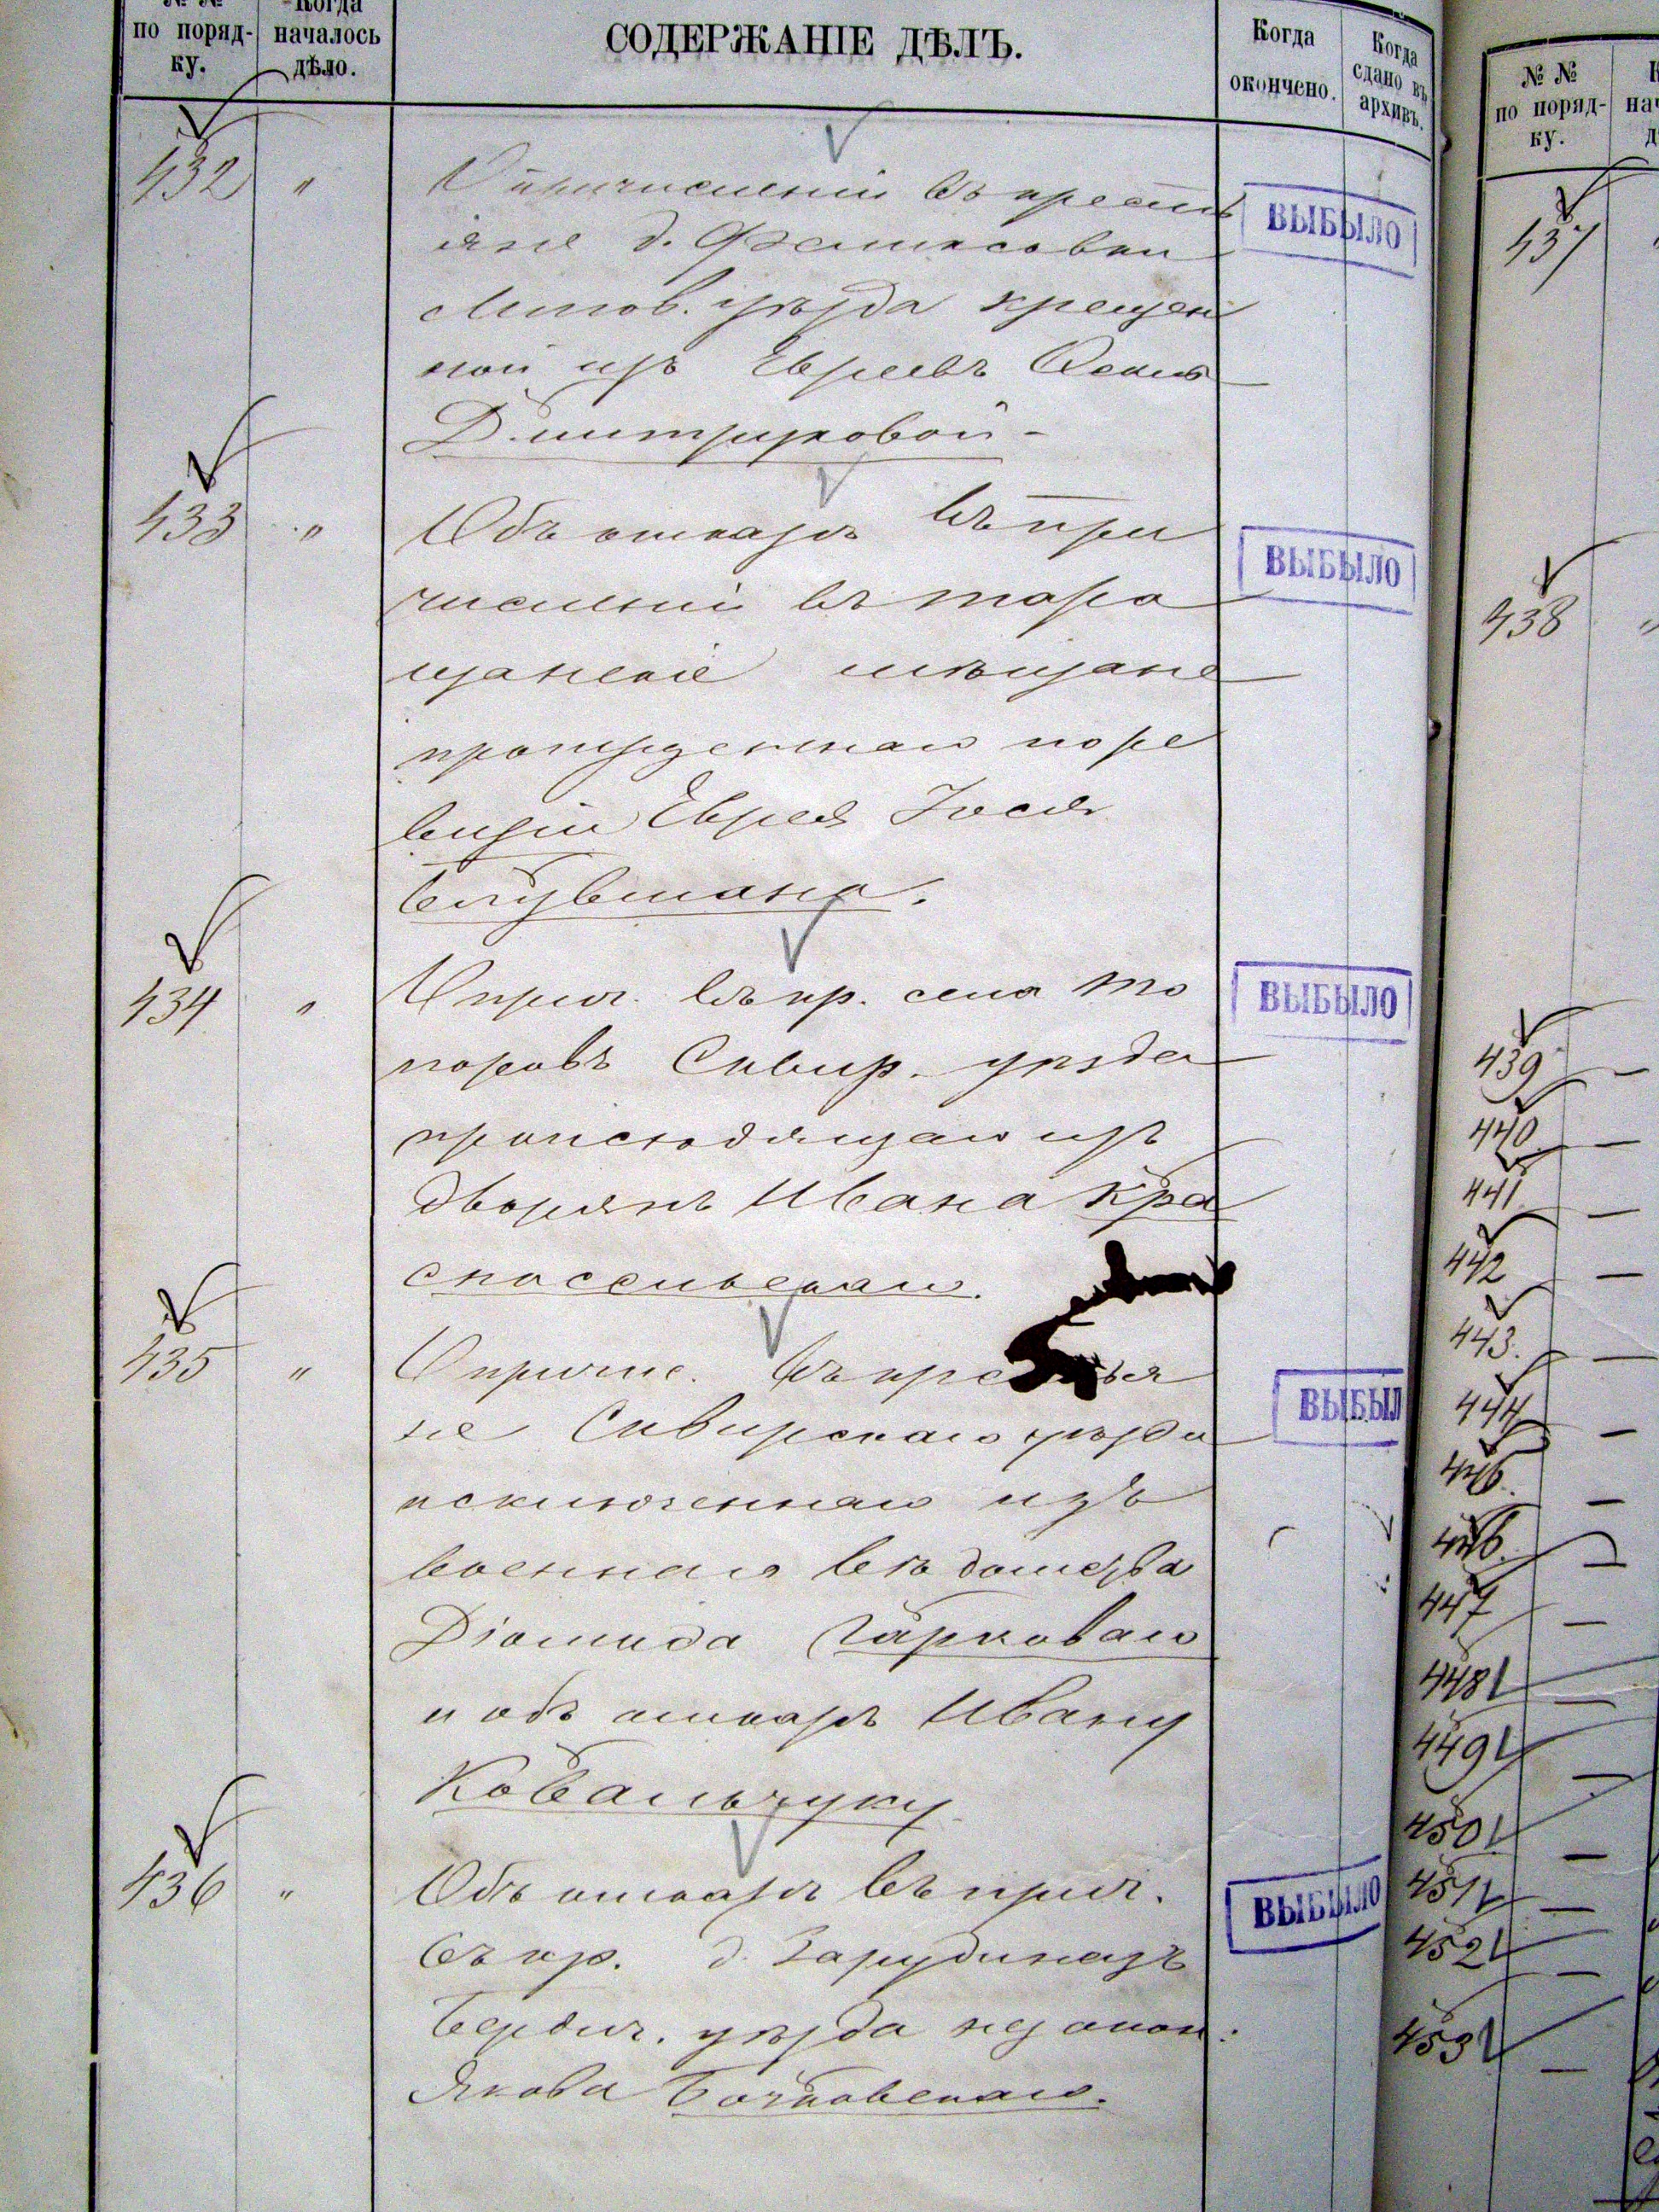 № №
по поряд-
ку.
Когда
началось
дѣло.
СОДЕРЖАНІЕ ДѢЛЪ.
Когда
окончено.
Когда
сдано въ
архивъ.
432 "
О причисленіи въ кресть
яне д.
Липов. уѣзда крещен
ной изъ Евреевъ
Дмитруковой -
ВЫБЫЛО
433 "
Объ отказѣ въ при
численіи въ тара
щанскіе мѣщане
пропущеннаго по ре
визіи Еврея Іося
ВЫБЫЛО
434 "
О прич. въ кр. села То
поровъ Сквир. уѣзда
происходящаго изъ
дворянъ Ивана Кра
сносельскаго.
ВЫБЫЛО
435 "
О причис. въ крестья
не Сквирскаго уѣзда
исключеннаго изъ
военнаго вѣдомства
Діомида Гаркаваго
и объ отказѣ Ивану
Ковальчуку
ВЫБЫЛ
436 "
Объ отказѣ въ прич.
въ кр. д. Зарудинецъ
Бердич. уѣзда незакон:
Якова Бочковскаго.
ВЫБЫЛО
№ №
по поряд-
ку.
437
438
439
440
441
442
443.
444
445.
446.
447
448
449
450
451
452
453